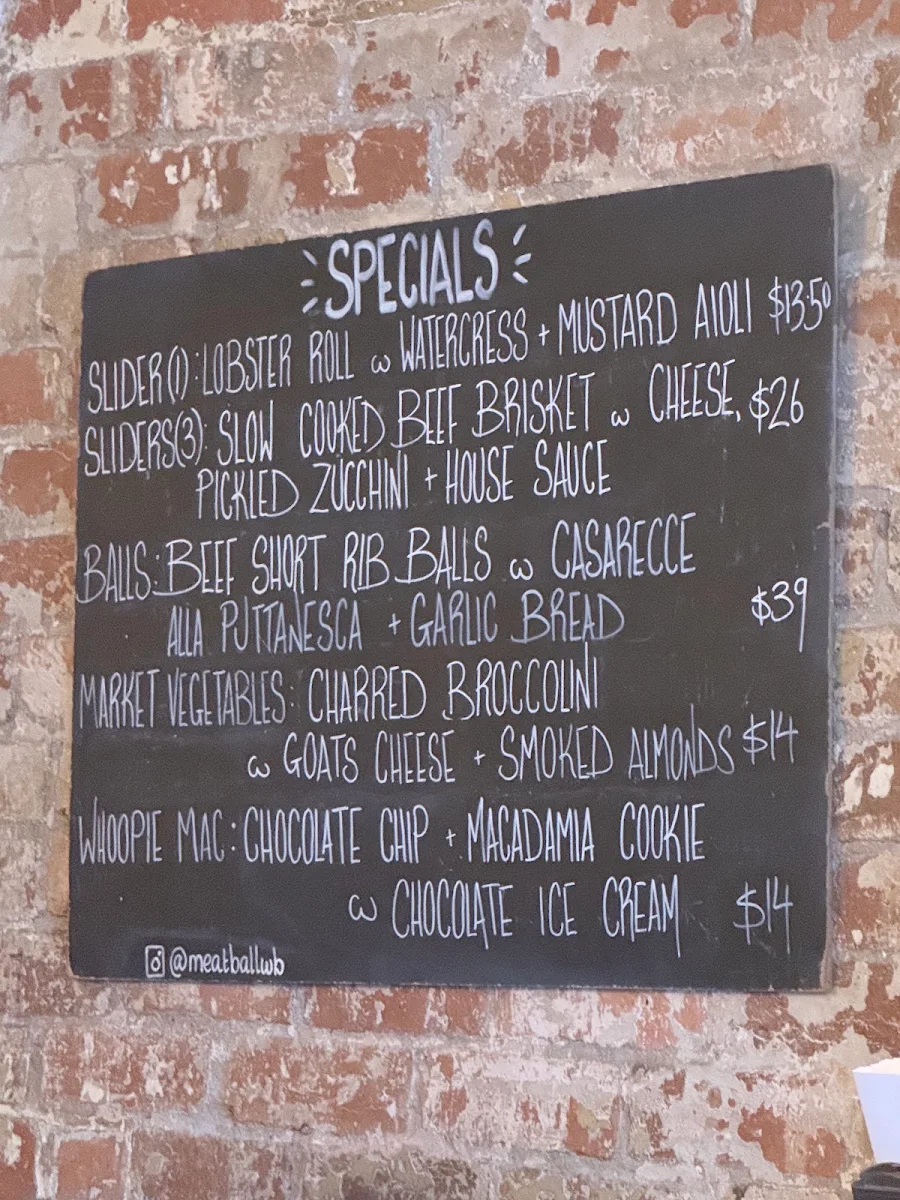 SPECIALS
SLIDER(1): LOBSTER ROLL w WATERCRESS + MUSTARD AIOLI $13.50
SLIDERS(3): SLOW COOKED BEEF BRISKET w CHEESE, $26
PICKLED ZUCCHINI + HOUSE SAUCE
BALLS: BEEF SHORT RIB BALLS w CASARECCE
ALLA PUTTANESCA + GARLIC BREAD $39
MARKET VEGETABLES: CHARRED BROCCOLINI
w GOATS CHEESE + SMOKED ALMONDS $14
WHOOPIE MAC: CHOCOLATE CHIP + MACADAMIA COOKIE
w CHOCOLATE ICE CREAM $14
@meatballwb